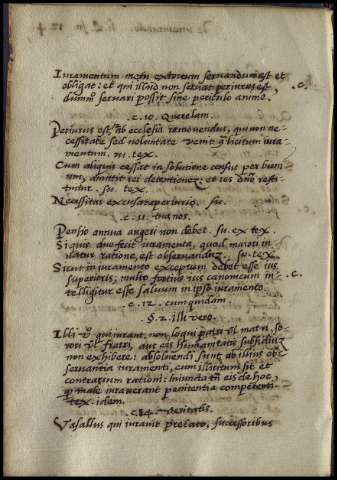 De iureiurando. li. 2.
Iuramentum metu extortum servandum est et
obligat: et qui illud non servat periurus est,
dummo servari possit sine periculo animę.
c. 10. Querelam.
Periurus est, ab ecclesia removendus, qui non ne-
cessitate sed voluntate venit contra licitum iura-
mentum. su. tex.
Cum aliquis cessit in solutione census per bien-
nium, amittit rei detentionem: et res dno resti-
tuitur. su. tex.
Necessitas excusat a periurio. su.
c. 11. tua nos.
Pensio annua augeri non debet. su. ex tex.
Si quis duo fecit iuramenta, quod maiori ni
ratione, est observandum. su. tex.
Sicut in iuramento exceptum debet esse ius
superioris; multo fortius ius canonicum in-
telligitur esse salvum in ipso iuramento.
c. 12. cum quidam.
§. 2. illi vero.
Illi vo qui iurant, non loqui patri vl matri, so-
rori vl fratri, aut eis humanitatis subsidium
non exhibere: absolvendi sunt ab illius ob-
servantia iuramenti, cum illicitum sit et
contrarium rationi: iniuncta tn eis de hoc,
qd male iuraverant penitentia competenti.
tex. idem.
c. 14. veritatis.
Vasallus qui iuravit prelato, successoribus